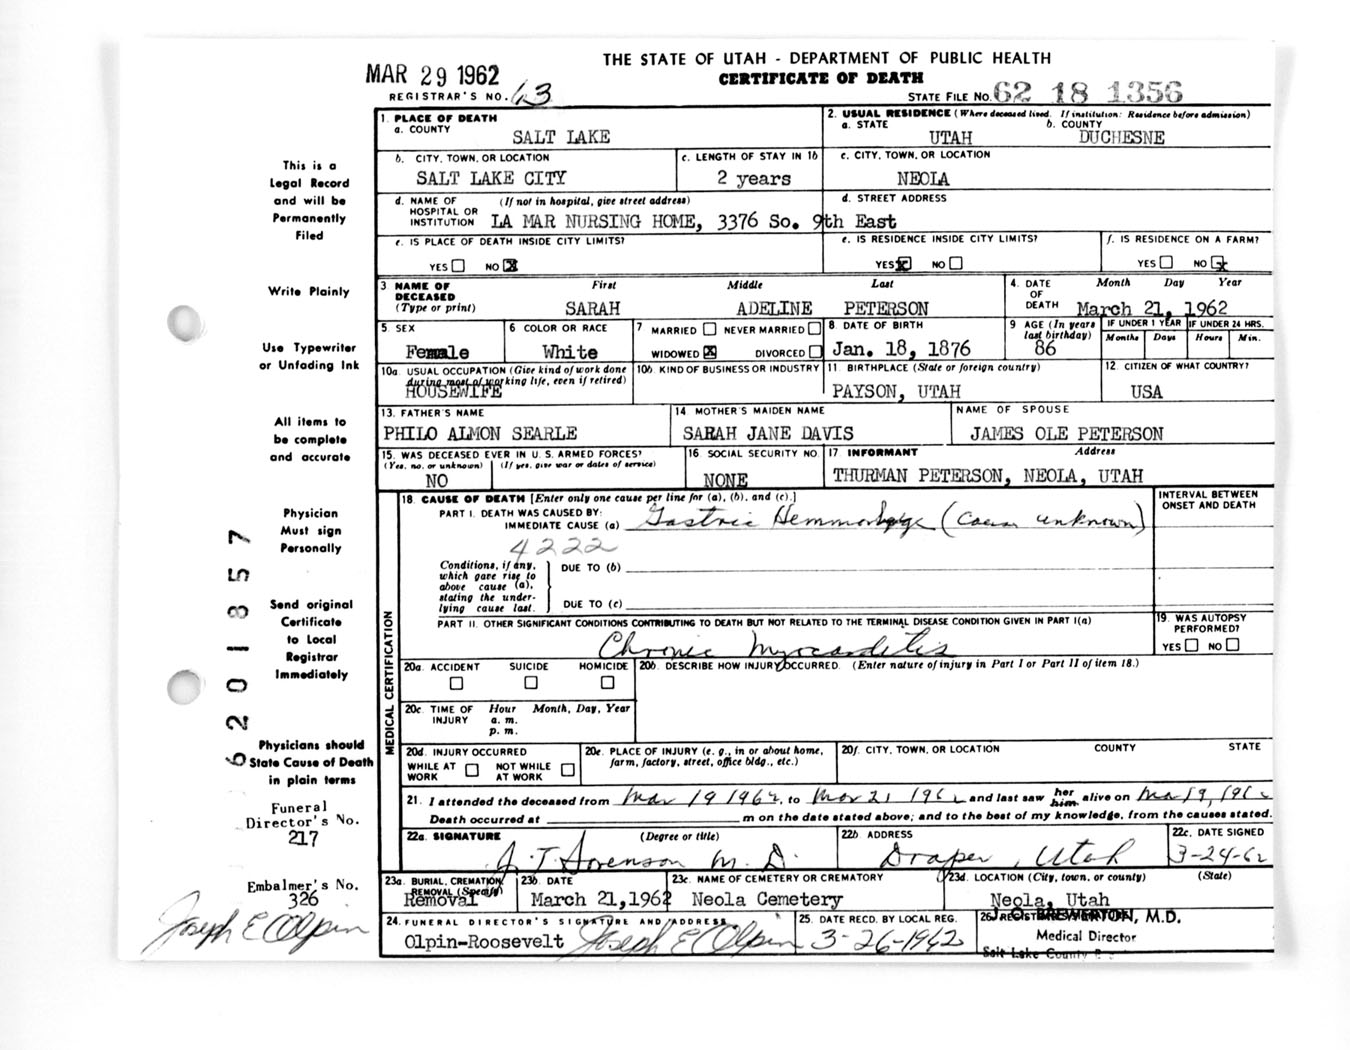 THE STATE OF UTAH - DEPARTMENT OF PUBLIC HEALTH
MAR 29 1962
CERTIFICATE OF DEATH
REGISTRAR'S NO. 63
STATE FILE NO. 62 18 1356
This is a
Legal Record
and will be
Permanently
Filed
Write Plainly
Use Typewriter
or Unfading Ink
All items to
be complete
and accurate
Physician
Must sign
Personally
Send original
Certificate
to Local
Registrar
Immediately
Physicians should
State Cause of Death
in plain terms
Funeral
Director's No.
217
Embalmer's No.
326
Joseph E Olpin
6201857
1. PLACE OF DEATH
a. COUNTY
SALT LAKE
2. USUAL RESIDENCE (Where deceased lived. If institution: Residence before admission)
a. STATE b. COUNTY
UTAH DUCHESNE
b. CITY, TOWN, OR LOCATION
SALT LAKE CITY
c. LENGTH OF STAY IN 1b
2 years
c. CITY, TOWN, OR LOCATION
NEOLA
d. NAME OF HOSPITAL OR INSTITUTION (If not in hospital, give street address)
LA MAR NURSING HOME, 3376 So. 9th East
d. STREET ADDRESS
e. IS PLACE OF DEATH INSIDE CITY LIMITS?
YES NO X
e. IS RESIDENCE INSIDE CITY LIMITS?
YES X NO
f. IS RESIDENCE ON A FARM?
YES NO X
3 NAME OF DECEASED (Type or print)
First Middle Last
SARAH ADELINE PETERSON
4. DATE OF DEATH
Month Day Year
March 21, 1962
5. SEX
Female
6 COLOR OR RACE
White
7 MARRIED NEVER MARRIED
WIDOWED X DIVORCED
8. DATE OF BIRTH
Jan. 18, 1876
9 AGE (In years last birthday)
86
IF UNDER 1 YEAR
Months Days
IF UNDER 24 HRS.
Hours Min.
10a. USUAL OCCUPATION (Give kind of work done during most of working life, even if retired)
HOUSEWIFE
10b. KIND OF BUSINESS OR INDUSTRY
11. BIRTHPLACE (State or foreign country)
PAYSON, UTAH
12. CITIZEN OF WHAT COUNTRY?
USA
13. FATHER'S NAME
PHILO ALMON SEARLE
14 MOTHER'S MAIDEN NAME
SARAH JANE DAVIS
NAME OF SPOUSE
JAMES OLE PETERSON
15. WAS DECEASED EVER IN U. S. ARMED FORCES?
(Yes, no, or unknown) (If yes, give war or dates of service)
NO
16. SOCIAL SECURITY NO.
NONE
17. INFORMANT Address
THURMAN PETERSON, NEOLA, UTAH
MEDICAL CERTIFICATION
18. CAUSE OF DEATH [Enter only one cause per line for (a), (b), and (c).]
INTERVAL BETWEEN
ONSET AND DEATH
PART I. DEATH WAS CAUSED BY:
IMMEDIATE CAUSE (a) Gastric Hemmorhage (Cause unknown)
4222
Conditions, if any,
which gave rise to
above cause (a),
stating the under-
lying cause last.
DUE TO (b)
DUE TO (c)
PART II. OTHER SIGNIFICANT CONDITIONS CONTRIBUTING TO DEATH BUT NOT RELATED TO THE TERMINAL DISEASE CONDITION GIVEN IN PART I(a)
Chronic Myocarditis
19. WAS AUTOPSY
PERFORMED?
YES NO
20a. ACCIDENT SUICIDE HOMICIDE
20b. DESCRIBE HOW INJURY OCCURRED. (Enter nature of injury in Part I or Part II of item 18.)
20c. TIME OF INJURY
Hour Month, Day, Year
a. m.
p. m.
20d. INJURY OCCURRED
WHILE AT WORK NOT WHILE AT WORK
20e. PLACE OF INJURY (e. g., in or about home, farm, factory, street, office bldg., etc.)
20f. CITY, TOWN, OR LOCATION COUNTY STATE
21. I attended the deceased from Mar 19 1962, to Mar 21 1962 and last saw her him alive on Mar 19, 1962
Death occurred at m on the date stated above; and to the best of my knowledge, from the causes stated.
22a. SIGNATURE (Degree or title)
J. T. Sorenson M. D.
22b. ADDRESS
Draper, Utah
22c. DATE SIGNED
3-24-62
23a. BURIAL, CREMATION, REMOVAL (Specify)
Removal
23b. DATE
March 21,1962
23c. NAME OF CEMETERY OR CREMATORY
Neola Cemetery
23d. LOCATION (City, town, or county) (State)
Neola, Utah
24. FUNERAL DIRECTOR'S SIGNATURE AND ADDRESS
Olpin-Roosevelt Joseph E Olpin
25. DATE RECD. BY LOCAL REG.
3-26-1962
BREWERTON, M.D.
Medical Director
Salt Lake County